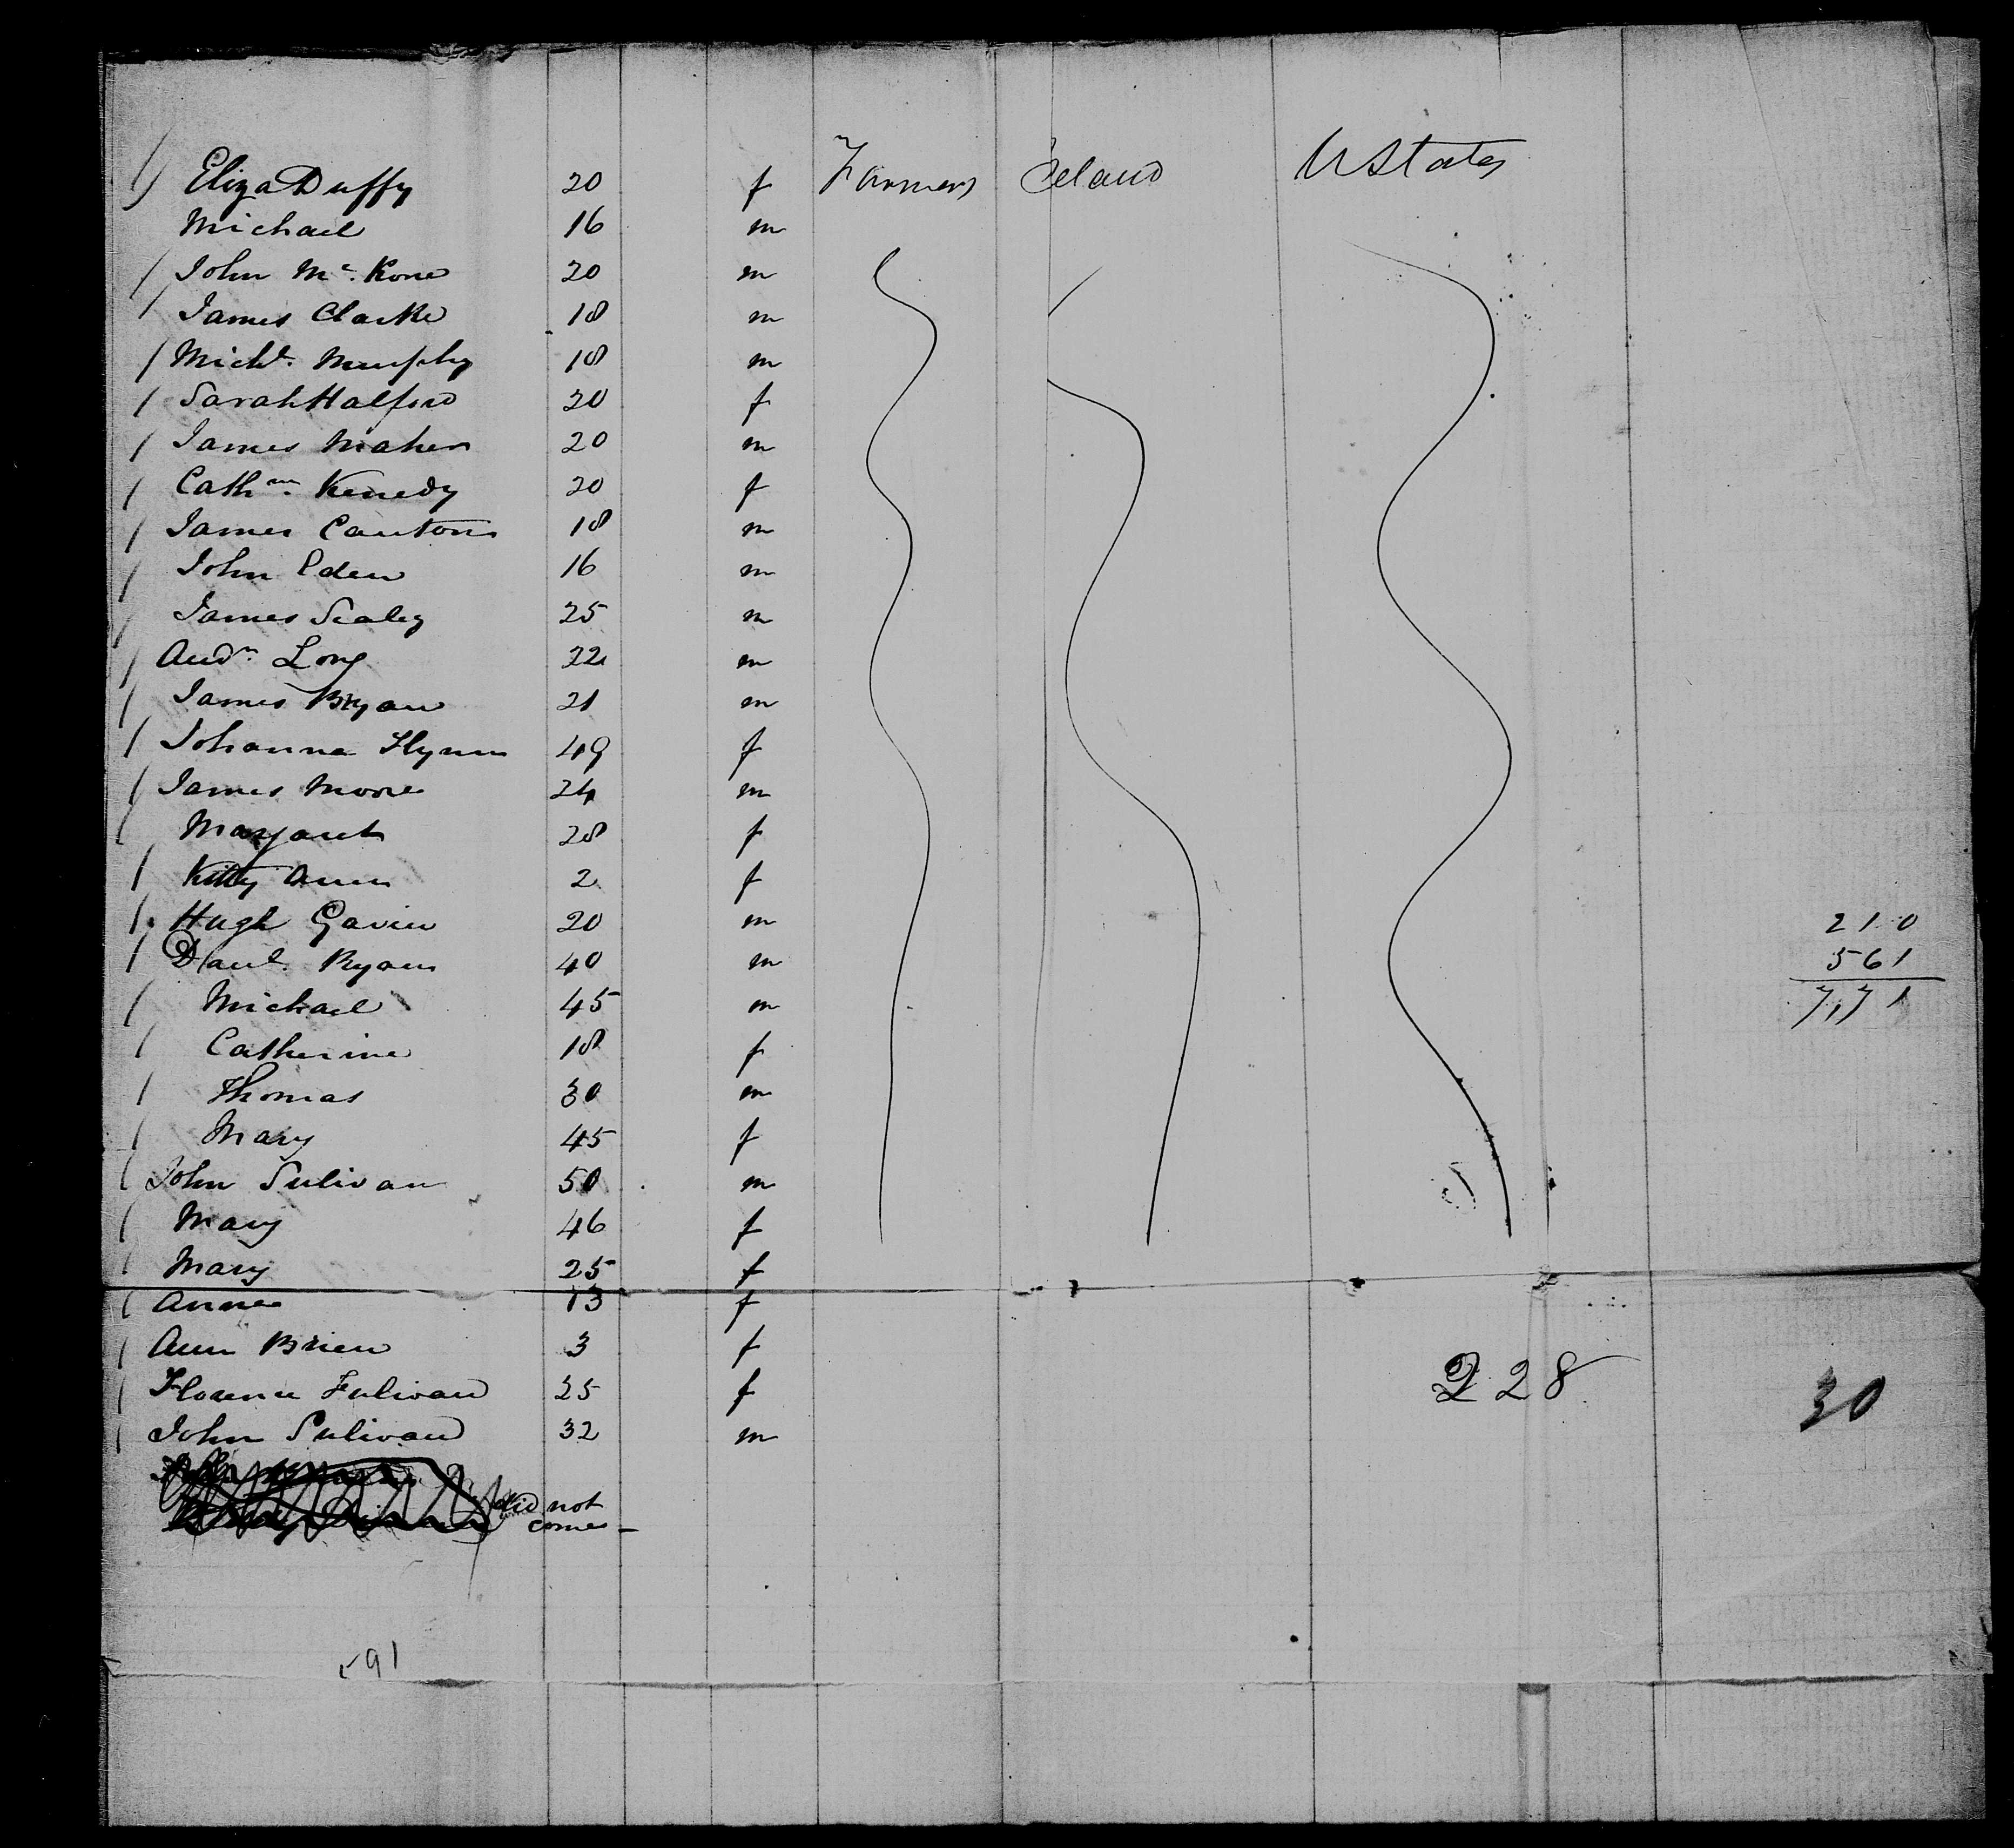 Eliza Duffy 20 f Farmers Ireland U States
Michael 16 m
John Mc. Kone 20 m
James Clarke 18 m
Michl. Murphy 18 m
Sarah Halford 20 f
James Maher 20 m
Cathne. Kenedy 20 f
James Cantons 18 m
John Eden 16 m
James Scaley 25 m
Andw. Long 22 m
James Bryan 21 m
Johanna Flynn 49 f
James Moore 24 m
Margaret 28 f
Kitty Ann 2 f
Hugh Gavin 20 m 210
Danl. Ryan 40 m 561
Michael 45 m 7,71
Catherine 18 f
Thomas 30 m
Mary 45 f
John Sulivan 50 m
Mary 46 f
Mary 25 f
Anne 13 f
Ann Brien 3 f
Florence Sulivan 25 f 228 30
John Sulivan 32 m
did not
come -
591